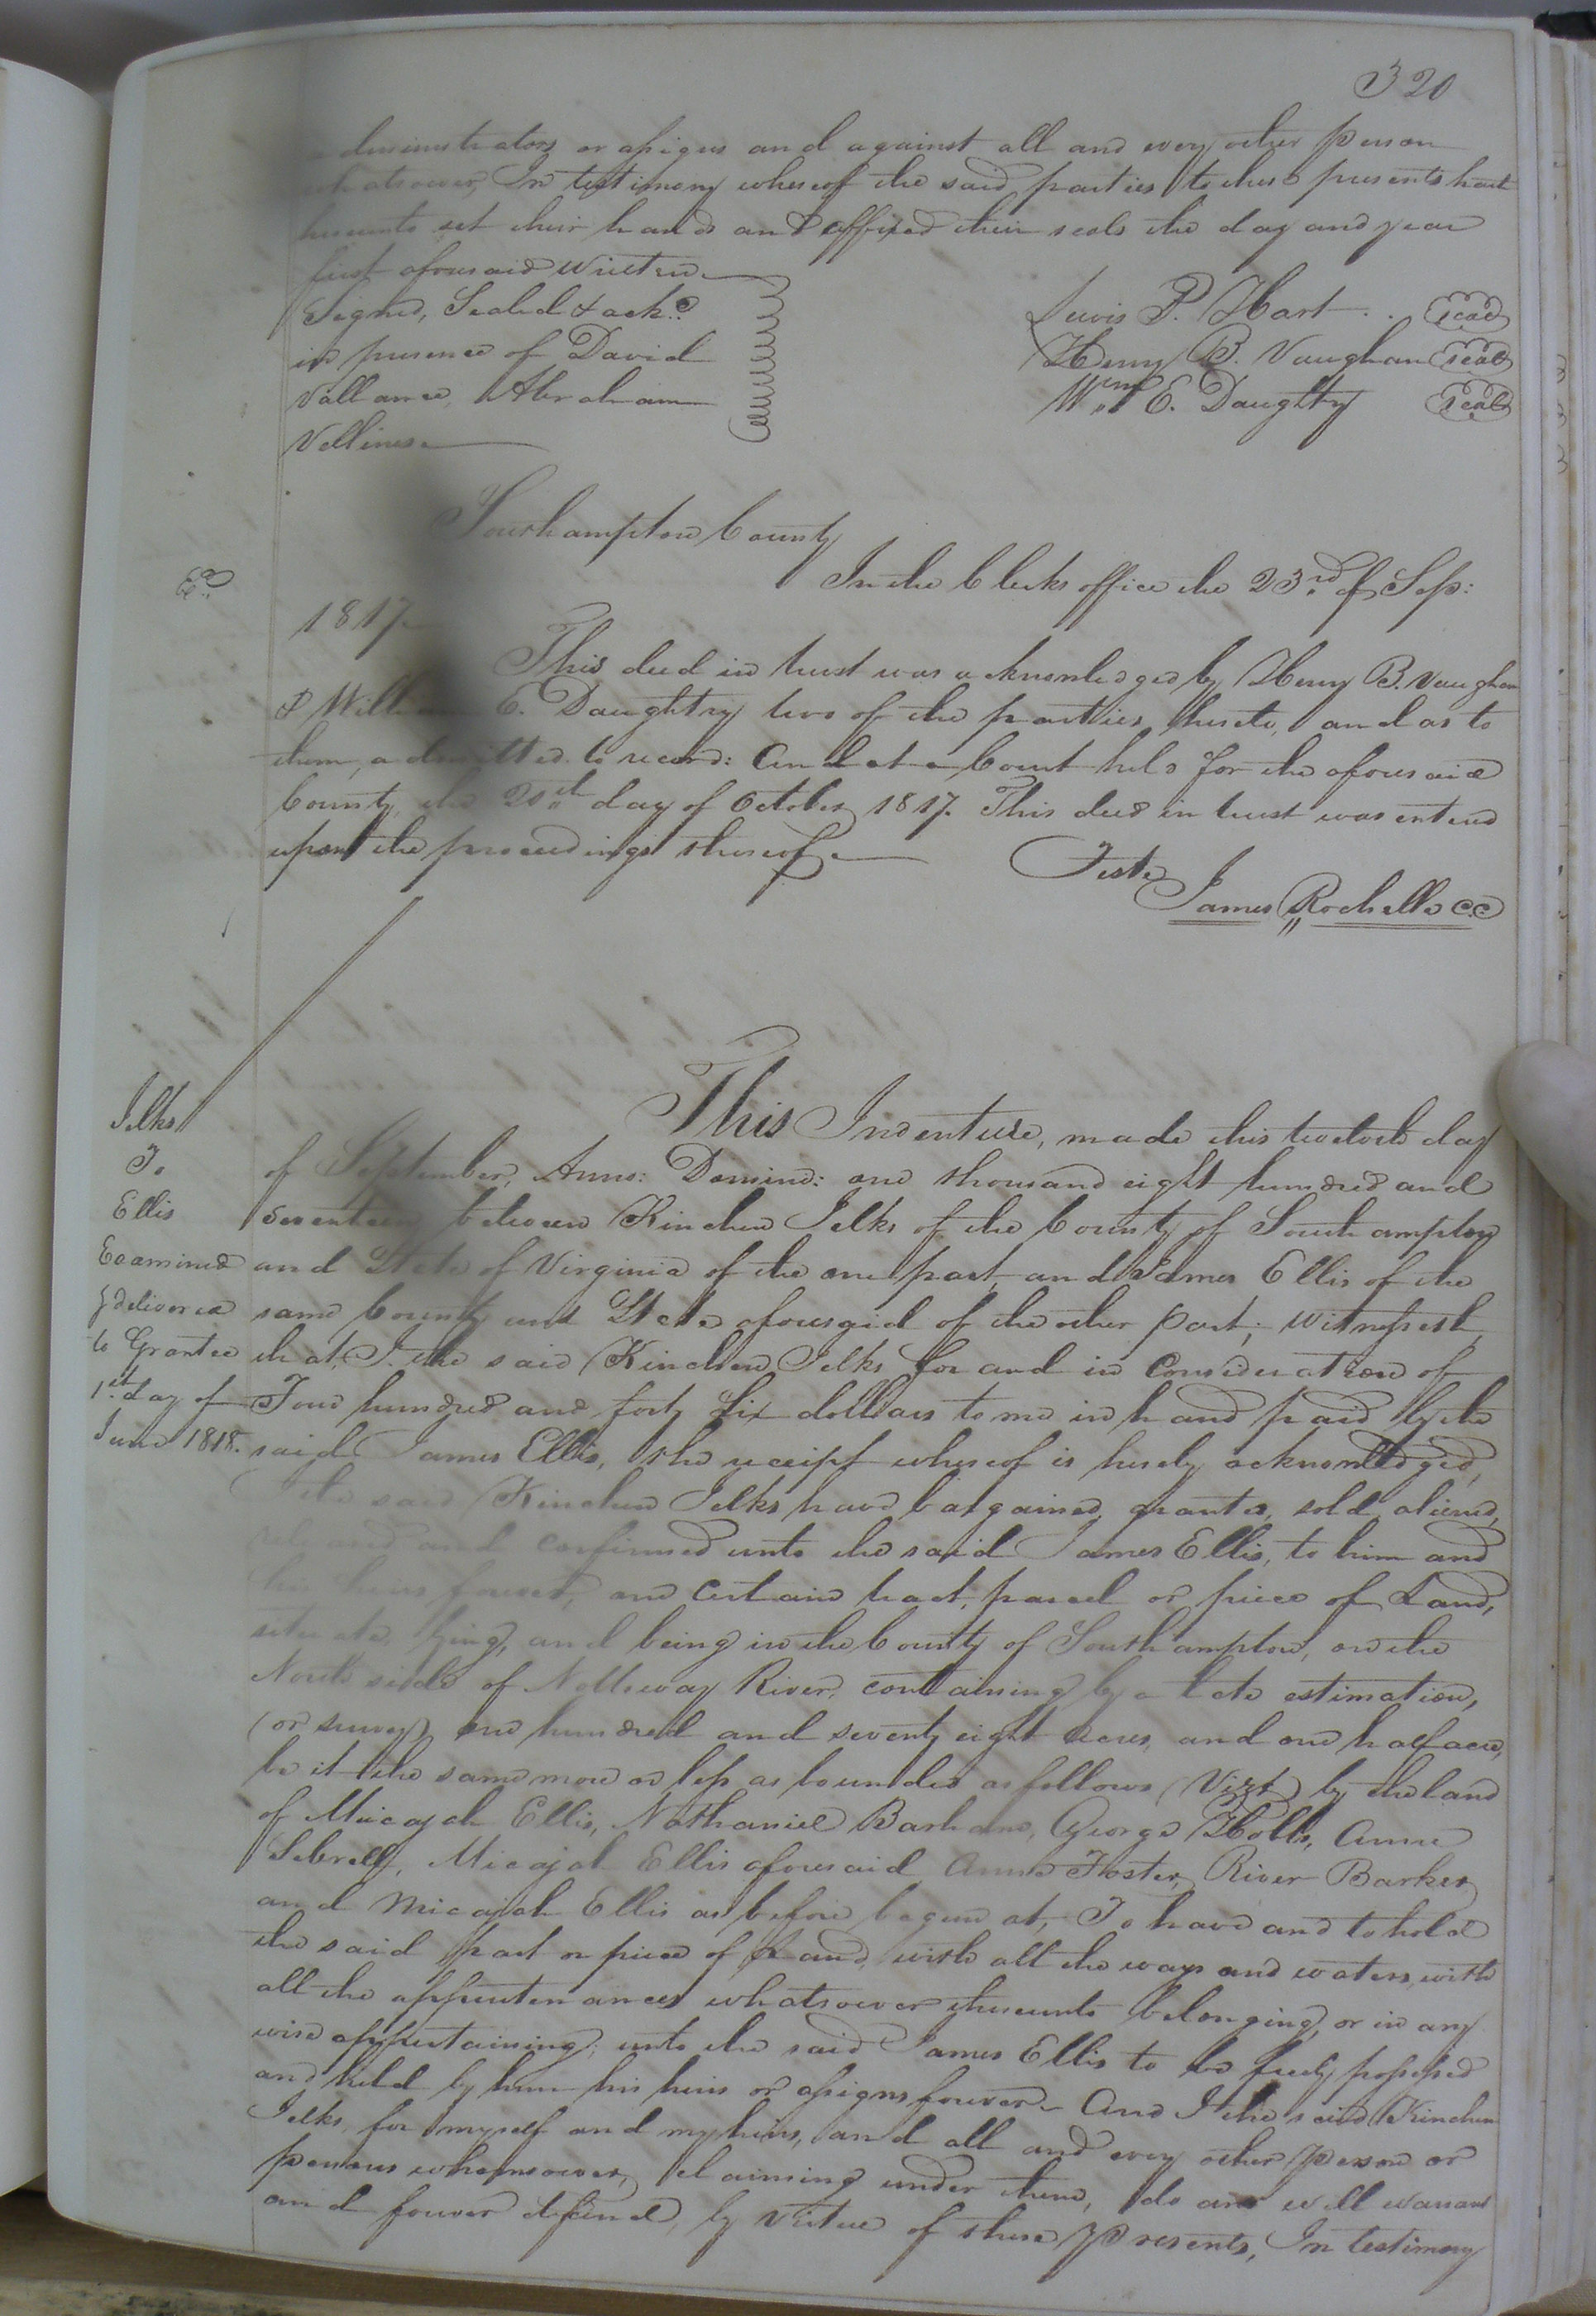 320
administrators or assigns and against all and every other person
whatsoever, In testimony whereof the said parties to these presents have
hereunto set their hands and affixed their seals the day and year
first aforesaid written.
Signed, Sealed & ack.d
in presence of David
Vallance, Abraham
Vellines
Lewis P. Hart .. seal
Henry B. Vaughan seal
Wm. E. Daughtry seal
Southampton County
In the Clerks office the 23rd of Sep:
Ed.
1817.
This deed in trust was acknowledged by Henry B. Vaughan
& William E. Daughtry two of the parties hereto, and as to
them, admitted to record: And at a Court held for the aforesaid
County, the 20th day of October 1817. This deed in trust was entered
upon the proceedings thereof.
Teste
James Rochelle C.C
Jelks
To
Ellis
Examined
& delivered
to Grantee
1st day of
June 1818.
This Indenture, made this twelvth day
of September, Anno: Domino: one thousand eight hundred and
seventeen, between Kinchen Jelks of the County of Southampton
and State of Virginia of the one part, and James Ellis of the
same County and State aforesaid of the other part; Witnesseth,
that, I the said Kinchen Jelks for and in Consideration of
Four hundred and forty six dollars to me in hand paid by the
said James Ellis, the receipt whereof is hereby acknowledged,
I the said Kinchen Jelks have bargained, granted, sold, aliened,
and confirmed unto the said James Ellis, to him and
his heirs forever, one Certain tract, parcel or piece of Land,
situate, lying, and being in the County of Southampton, on the
North side of Nottoway River, containing by a late estimation,
(or survey) one hundred and seventy eight acres, and one half acre,
be it the same more or less as bounded as follows (Vizt) by the land
of Micajah Ellis, Nathaniel Barham, George Holt, Anne
Sebrell, Micajah Ellis aforesaid Anne Foster, River Barker
and Micajah Ellis as before begun at, To have and to hold
the said tract or piece of Land, with all the ways and waters, with
all the appurtenances whatsoever thereunto belonging, or in any
wise appertaining, unto the said James Ellis to be freely possessed
and held by him his heirs or assigns forever. And I the said Kinchen
Jelks, for myself and my heirs, and all and every other person or
persons whomsoever, claiming under them, do and will warrant
and forever defend, by Virtue of these presents, In testimony